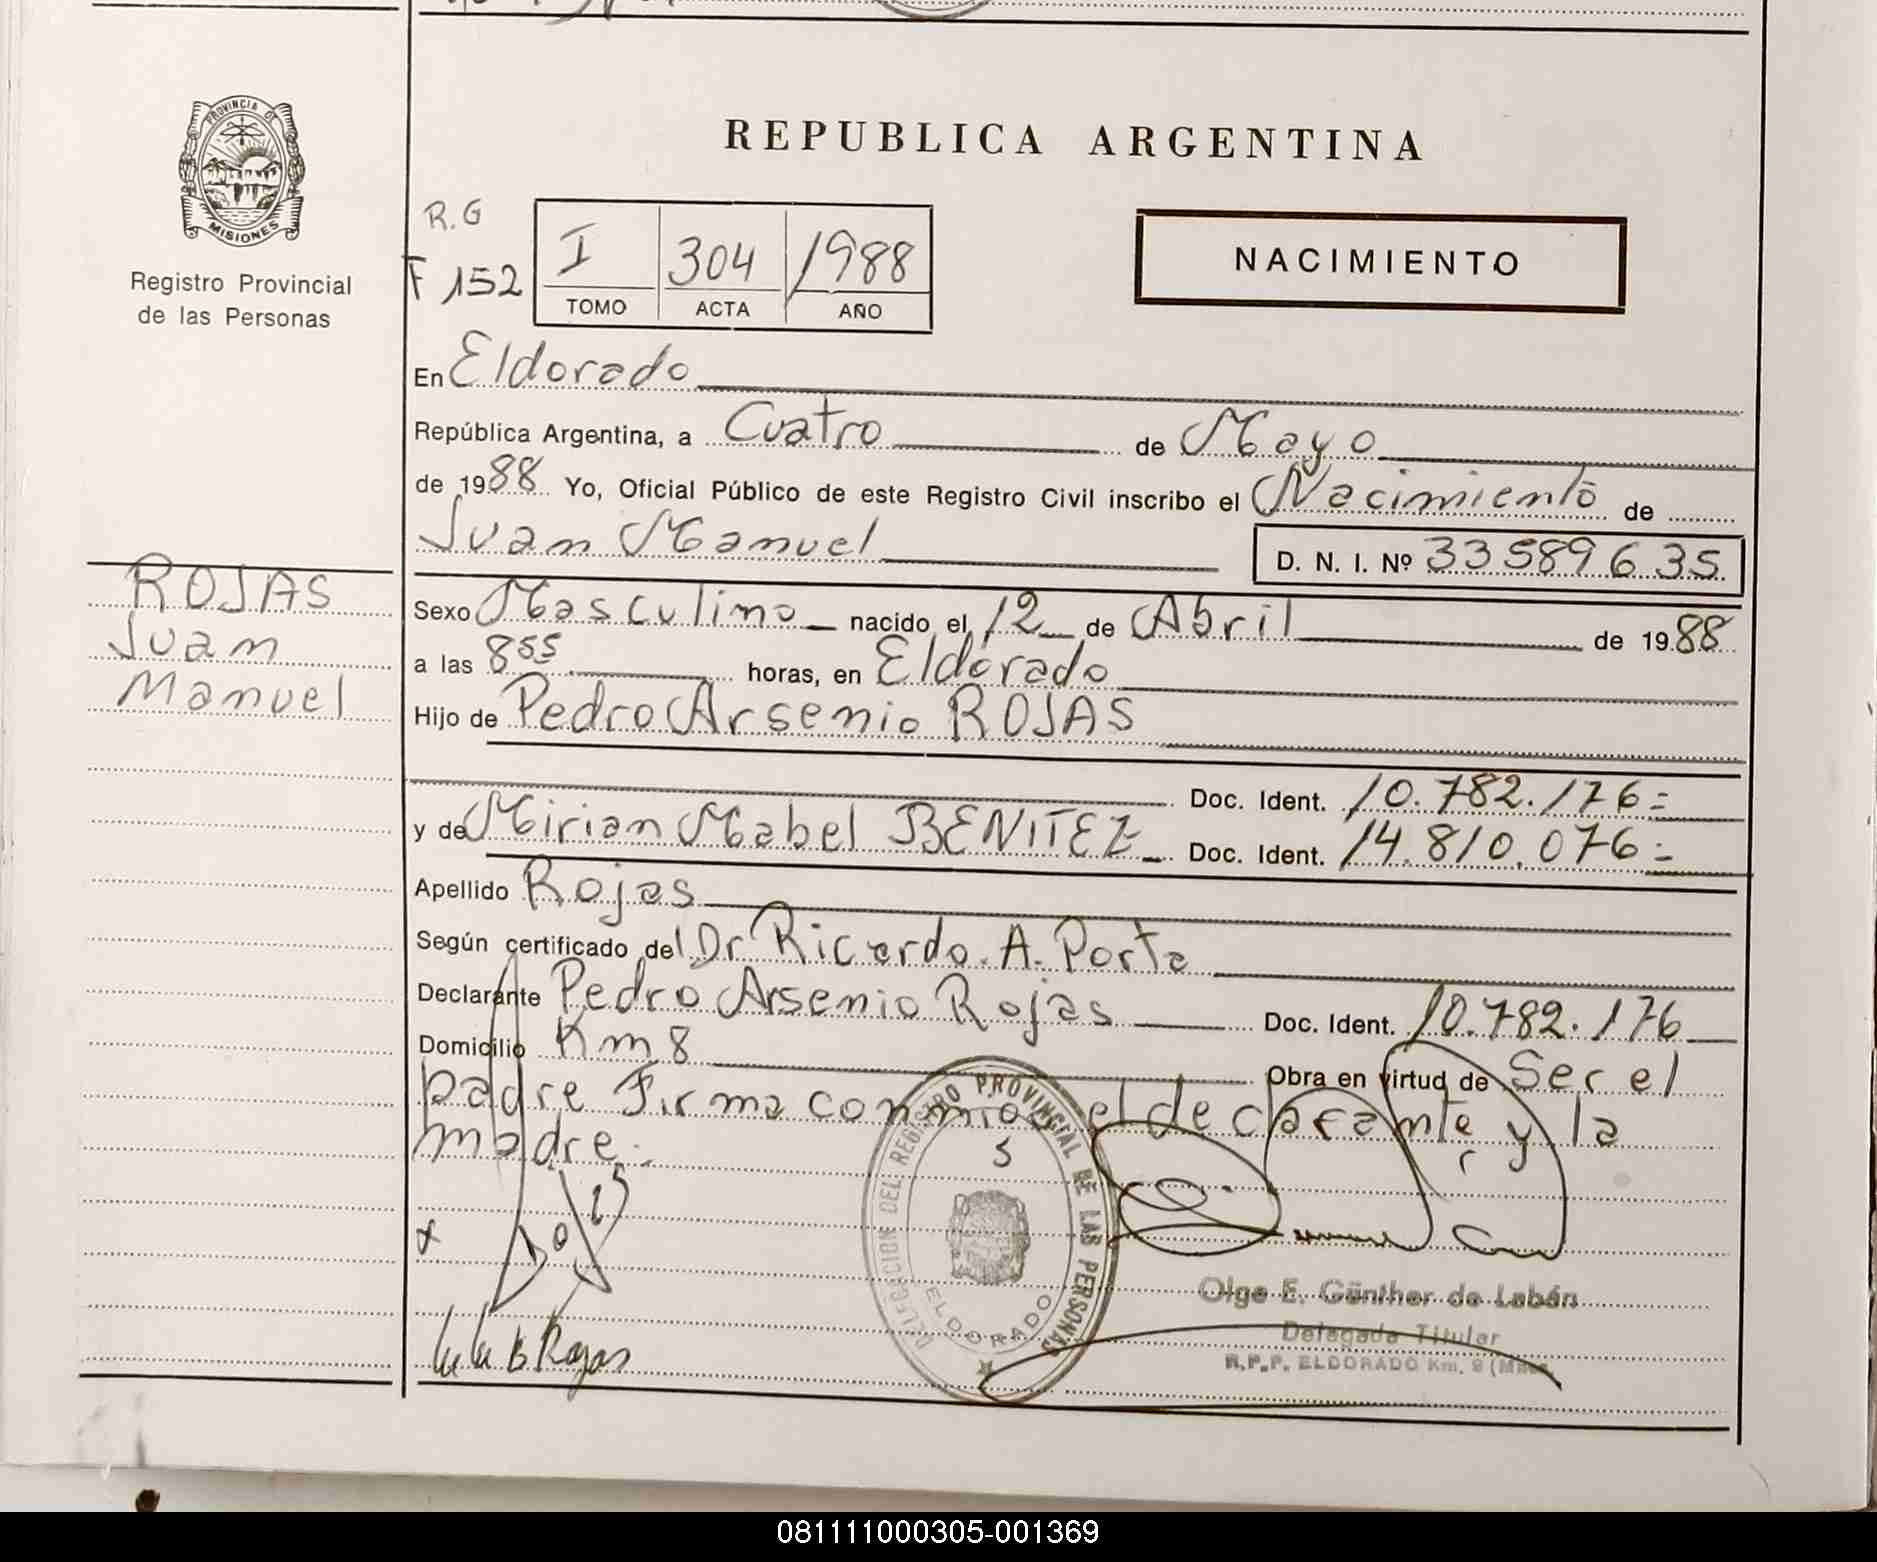 PROVINCIA DE
MISIONES
Registro Provincial
de las Personas
REPUBLICA ARGENTINA
NACIMIENTO
R.G
F 152
I 304 1988
TOMO ACTA AÑO
En Eldorado
República Argentina, a Cuatro de Mayo
de 1988 Yo, Oficial Público de este Registro Civil inscribo el Nacimiento de
Juan Manuel D. N. I. Nº 33589635
ROJAS
Juan
Manuel
Sexo Masculino nacido el 12 de Abril de 1988
a las 8 55 horas, en Eldorado
Hijo de Pedro Arsenio ROJAS
Doc. Ident. 10.782.176=
y de Mirian Mabel BENITEZ Doc. Ident. 14.810.076=
Apellido Rojas
Según certificado del Dr Ricardo. A. Porta
Declarante Pedro Arsenio Rojas Doc. Ident. 10.782.176
Domicilio Km 8 Obra en virtud de Ser el
padre Firma conmigo el declarante y la
madre.
DELEGACION DEL REGISTRO PROVINCIAL DE LAS PERSONAS
5
ELDORADO
x
B Rojas
Olga E. Günther de Labán
Delegada Titular
R.P.P. ELDORADO Km. 9 (Mnes
081111000305-001369